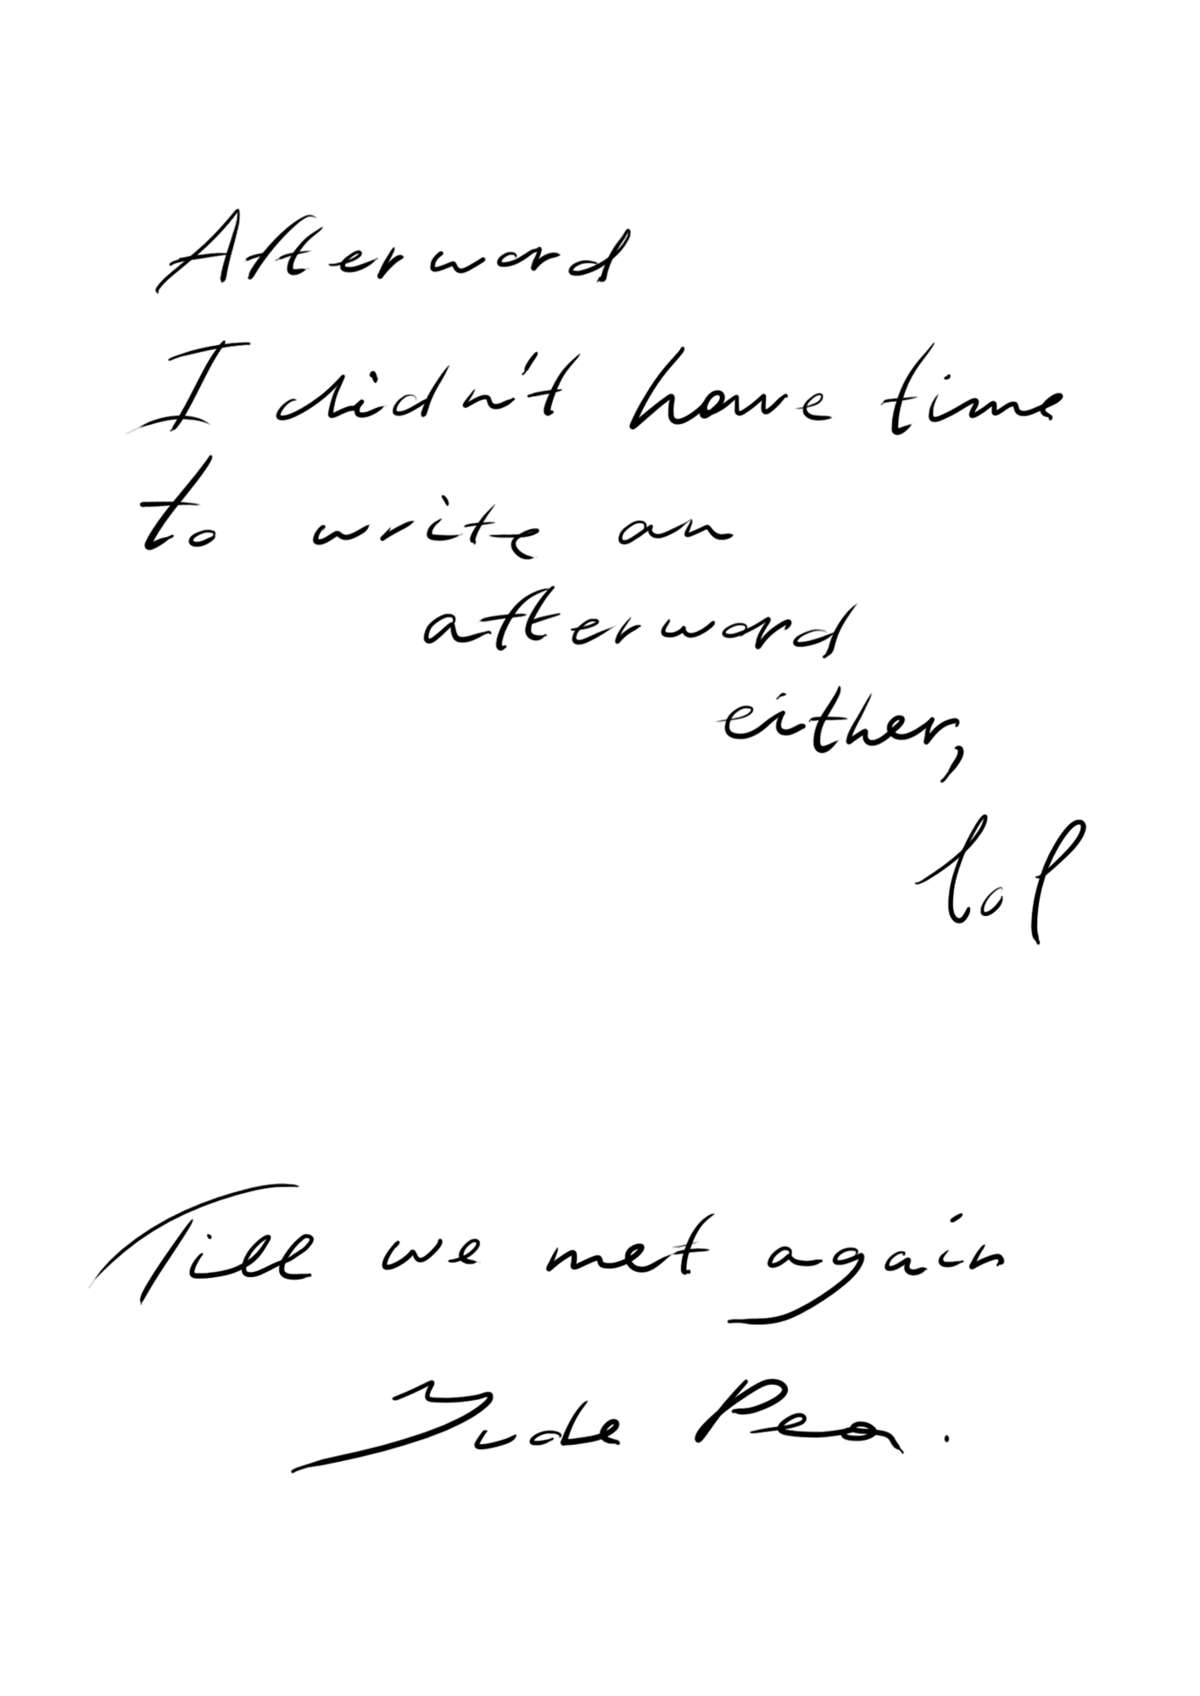 Afterword
I didn't have time
to write an
afterword
either,
lol
Till we met again
Jude Pea.